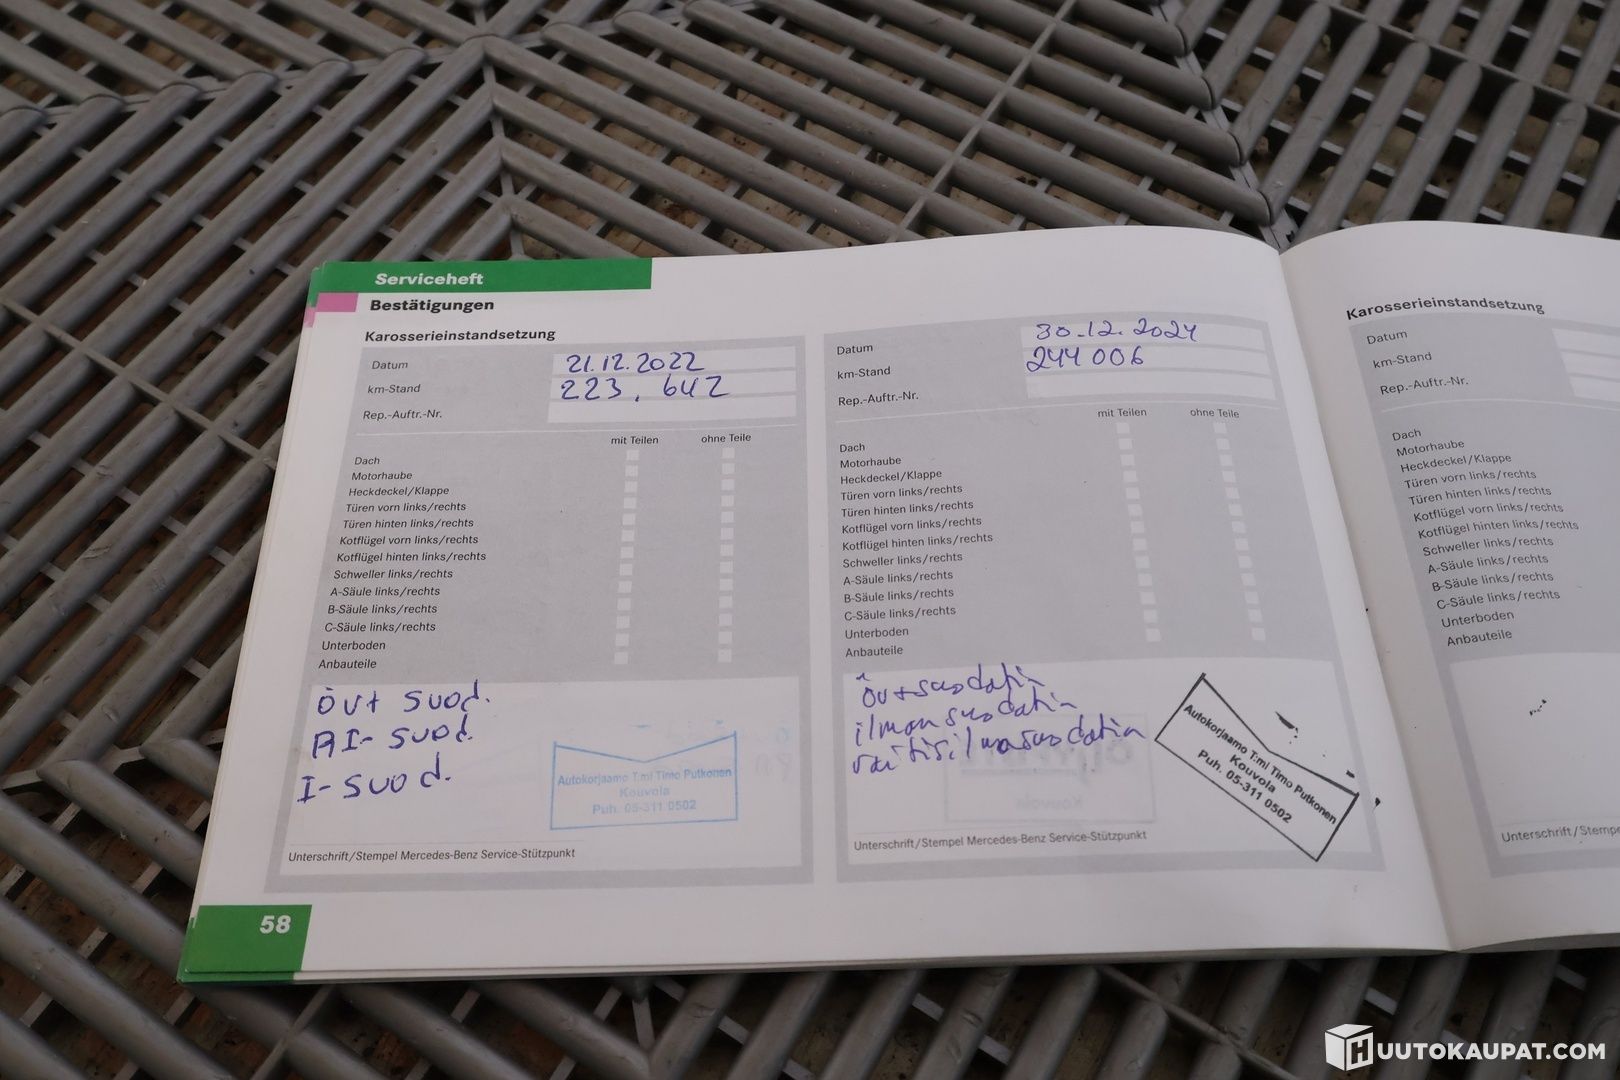 Serviceheft
Bestätigungen
Karosserieinstandsetzung
Datum 21.12.2022
km-Stand 223.642
Rep.-Auftr.-Nr.
mit Teilen ohne Teile
Dach
Motorhaube
Heckdeckel/Klappe
Türen vorn links/rechts
Türen hinten links/rechts
Kotflügel vorn links/rechts
Kotflügel hinten links/rechts
Schweller links/rechts
A-Säule links/rechts
B-Säule links/rechts
C-Säule links/rechts
Unterboden
Anbauteile
ÖVt SUOd.
RI- SUOd.
I- SUOd.
Autokorjaamo T:mi Timo Putkonen
Kouvola
Puh. 05-311 0502
Unterschrift/Stempel Mercedes-Benz Service-Stützpunkt
58
Datum 30.12.2024
km-Stand 244006
Rep.-Auftr.-Nr.
mit Teilen ohne Teile
Dach
Motorhaube
Heckdeckel/Klappe
Türen vorn links/rechts
Türen hinten links/rechts
Kotflügel vorn links/rechts
Kotflügel hinten links/rechts
Schweller links/rechts
A-Säule links/rechts
B-Säule links/rechts
C-Säule links/rechts
Unterboden
Anbauteile
Öv+suodatin
ilmansuodatin
raitisilmasuodatin
Autokorjaamo T:mi Timo Putkonen
Kouvola
Puh. 05-311 0502
Unterschrift/Stempel Mercedes-Benz Service-Stützpunkt
Karosserieinstandsetzung
Datum
km-Stand
Rep.-Auftr.-Nr.
Dach
Motorhaube
Heckdeckel/Klappe
Türen vorn links/rechts
Türen hinten links/rechts
Kotflügel vorn links/rechts
Kotflügel hinten links/rechts
Schweller links/rechts
A-Säule links/rechts
B-Säule links/rechts
C-Säule links/rechts
Unterboden
Anbauteile
Unterschrift/Stempe
HUUTOKAUPAT.COM